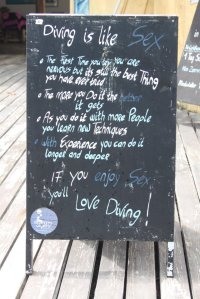 Diving is like Sex
The First Time you try you are
nervous but its still the best Thing
you have ever tried
The more you Do it the better
it gets
As you do it with more People
you learn new Techniques
With Experience you can do it
longer and deeper
IF you enjoy Sex
you'll
Love Diving!